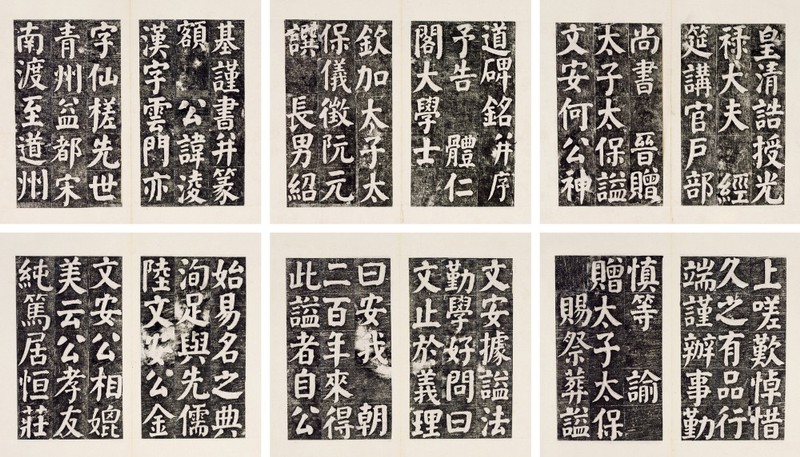 皇清誥授光
祿大夫 經
筵講官戶部
尚書 晉贈
太子太保謚
文安何公神
道碑銘并序
予告 體仁
閣大學士
欽加太子太
保儀徵阮元
譔 長男紹
基謹書并篆
額 公諱淩
漢字雲門亦
字仙槎先世
青州益都宋
南渡至道州
上嗟歎悼惜
久之有品行
端謹辦事勤
慎等 諭
贈太子太保
賜祭葬謚
文安據謚法
勤學好問曰
文止於義理
曰安我 朝
二百年來得
此謚者自公
始易名之典
洵足與先儒
陸文公金
文安公相媲
美云公孝友
純篤居恒莊